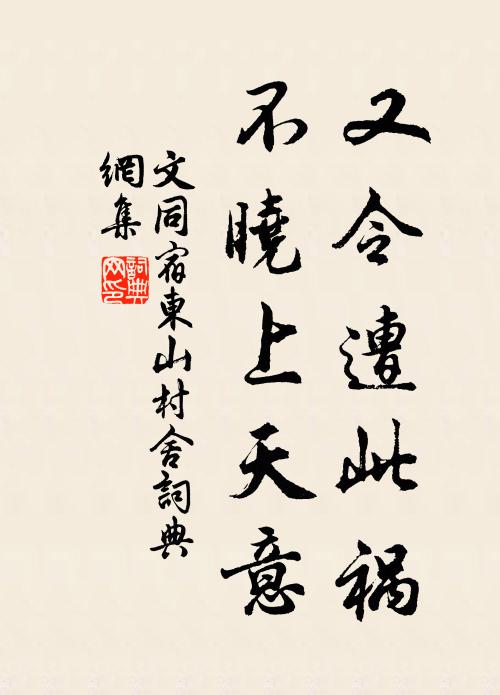 又令遭此祸
不曉上天意
文同宿東山村舍詞典
網集
詞典網印